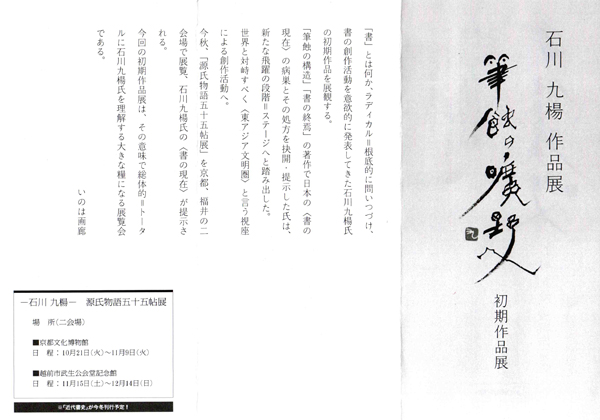 石川 九楊 作品展
筆蝕の曠野へ
初期作品展
『書』とは何か、ラディカル＝根底的に問いつづけ、
書の創作活動を意欲的に発表してきた石川九楊氏
の初期作品を展観する。
「筆蝕の構造」「書の終焉」の著作で日本の〈書の
現在〉の病巣とその処方を抉開・提示した氏は、
新たな飛躍の段階＝ステージへと踏み出した。
世界と対峙すべく〈東アジア文明圏〉と言う視座
による創作活動へ。
今秋、『源氏物語五十五帖展』を京都、福井の二
会場で展覧、石川九楊氏の〈書の現在〉が提示さ
れる。
今回の初期作品展は、その意味で総体的＝トータ
ルに石川九楊氏を理解する大きな糧になる展覧会
である。
いのは画廊
－石川 九楊－ 源氏物語五十五帖展
場 所（二会場）
■京都文化博物館
日 程：10月21日（火）～11月9日（火）
■越前市武生公会堂記念館
日 程：11月15日（土）～12月14日（日）
※『近代書史』が今冬刊行予定！